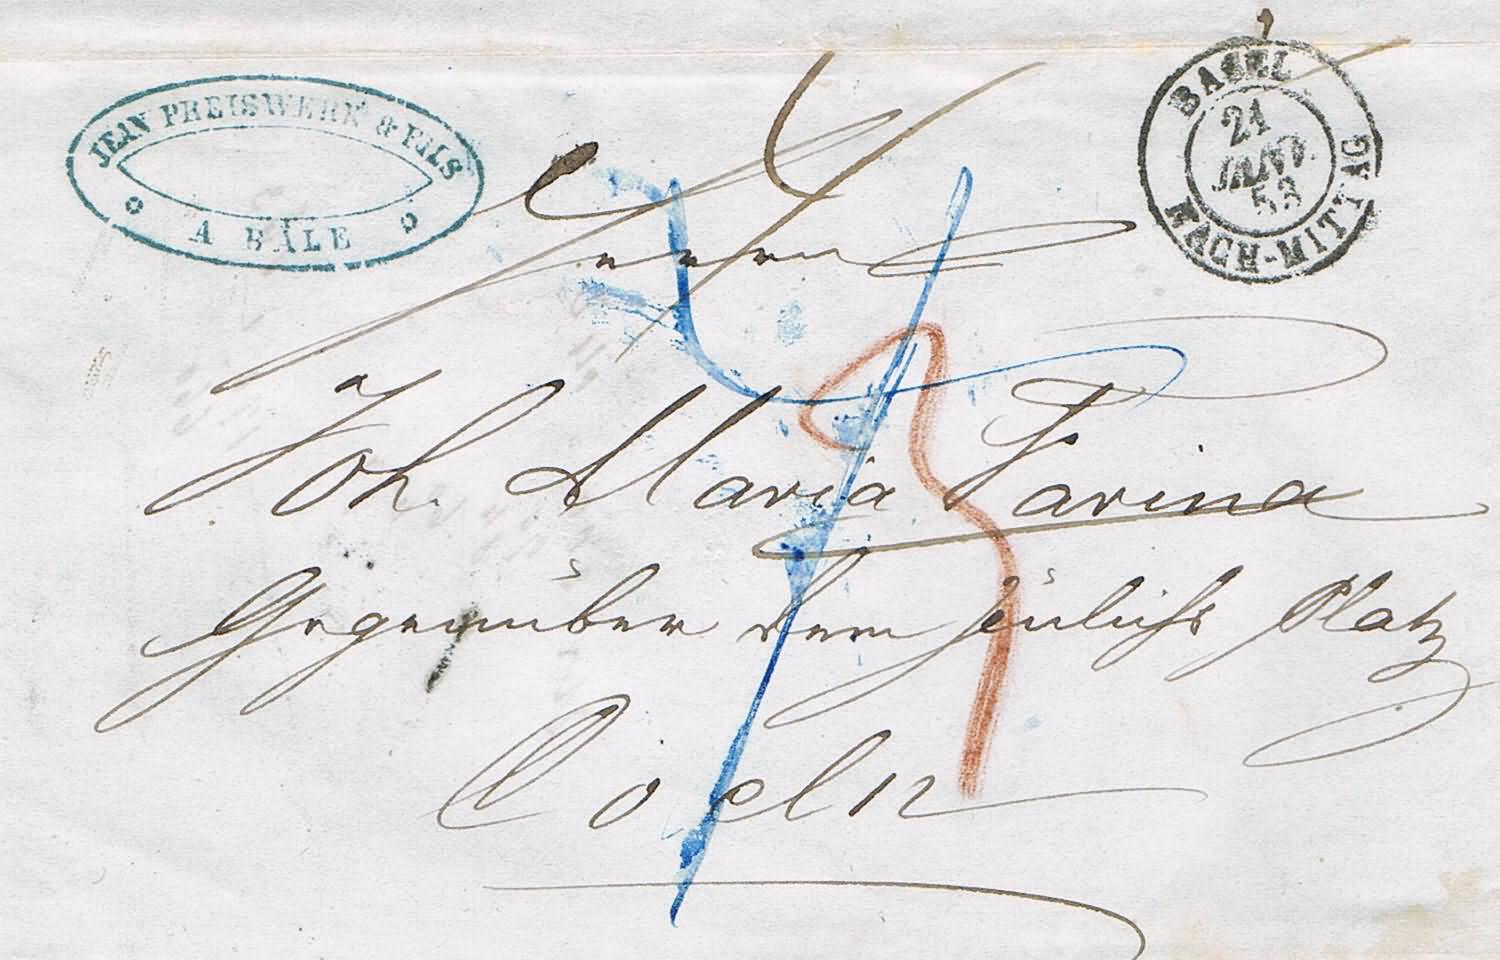 JEAN PREISWERK & FILS
A BÂLE
BASEL
21
JANV
53
NACH-MITTAG
Herrn
Joh. Maria Farina
Gegenüber dem Jülichs Platz
Coeln